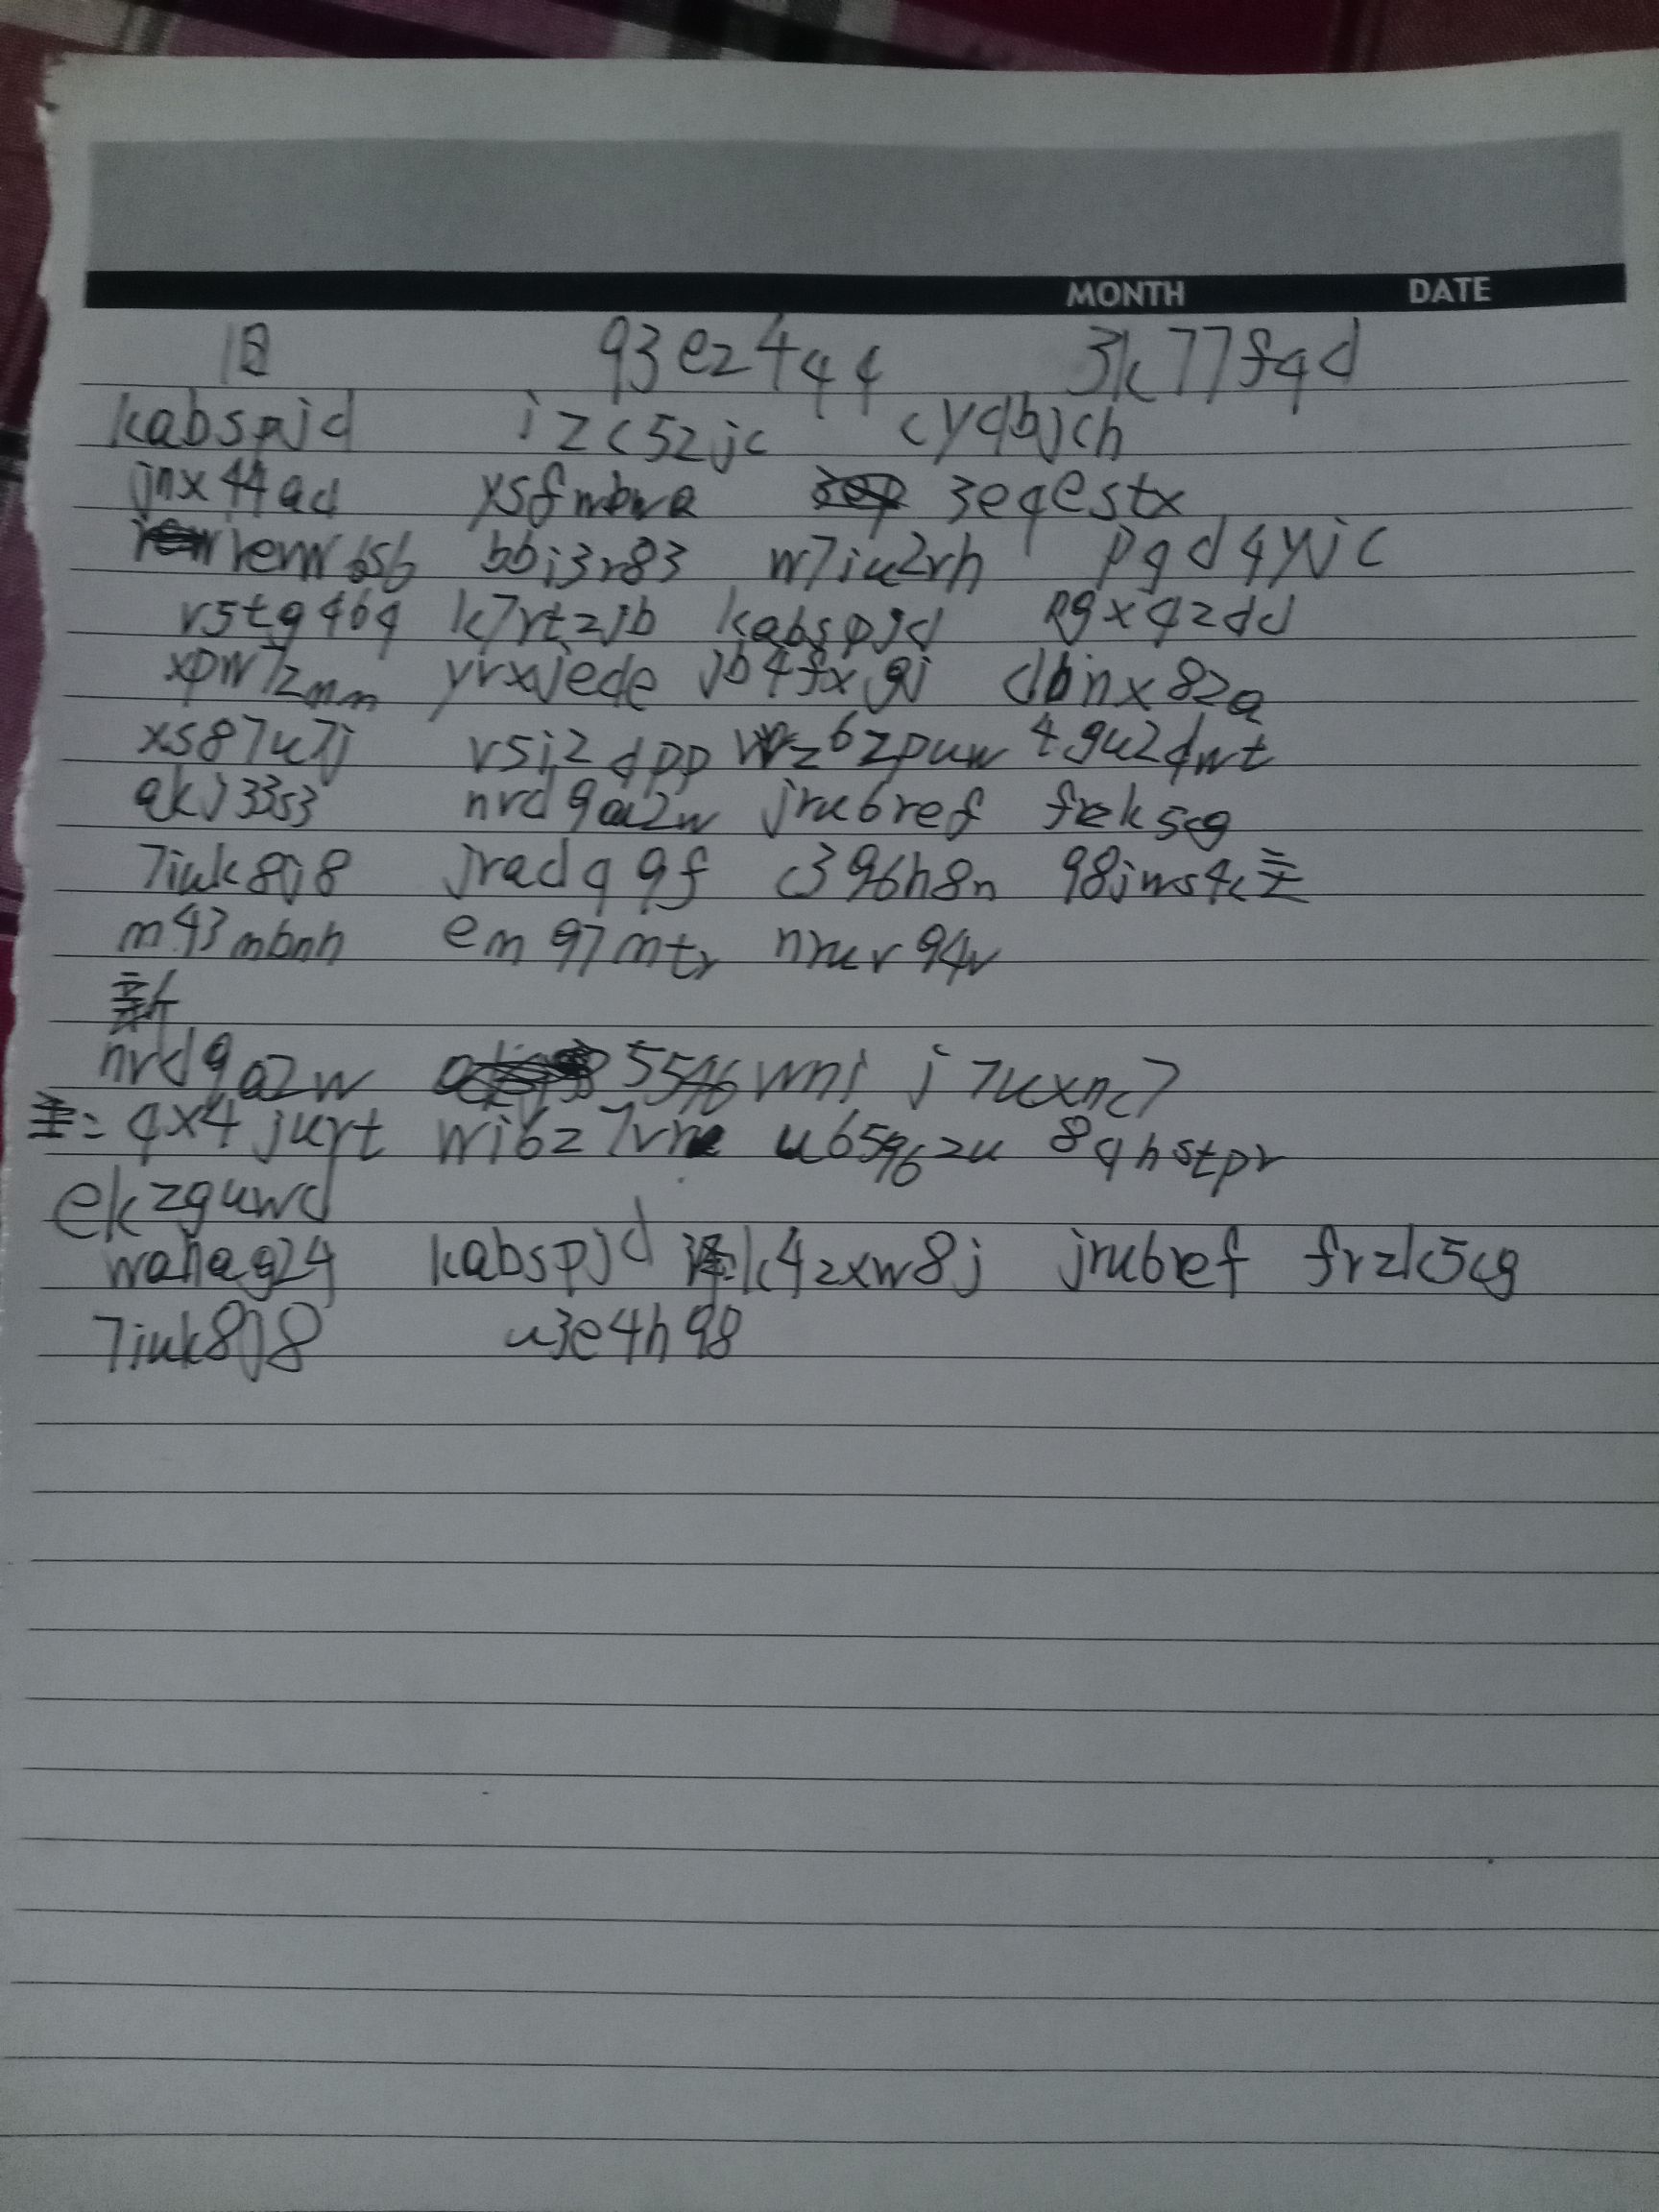 MONTH DATE
旧 93ez4q4 3k77fqd
kabspjd izc5zjc cyqbjch
jnx44ad ysfmbwa 3eqestx
bbi3r83 w7iu2rh pgd4yjc
v5tg464 k7rtzjb kabspjd pgx4zdd
xpw7zmm yrxjede jb4fxgj dbnx82a
xs87u7j v5jz z6zpuw 4gu2dwt
akj33s3 nrd9a2w jru6ref frzk5cg
7iuk8j8 jradq9f c396h8n 98jws4c
m43mbnh em97mtr nrurr94v
新
nrd9a2w j7uxnc7
主: 4x4jurt u6596zu 8qhstpr
ekzguwd
wahag24 kabspjd k4zxw8j jru6ref frzk5cg
7iuk8j8 u3e4h98